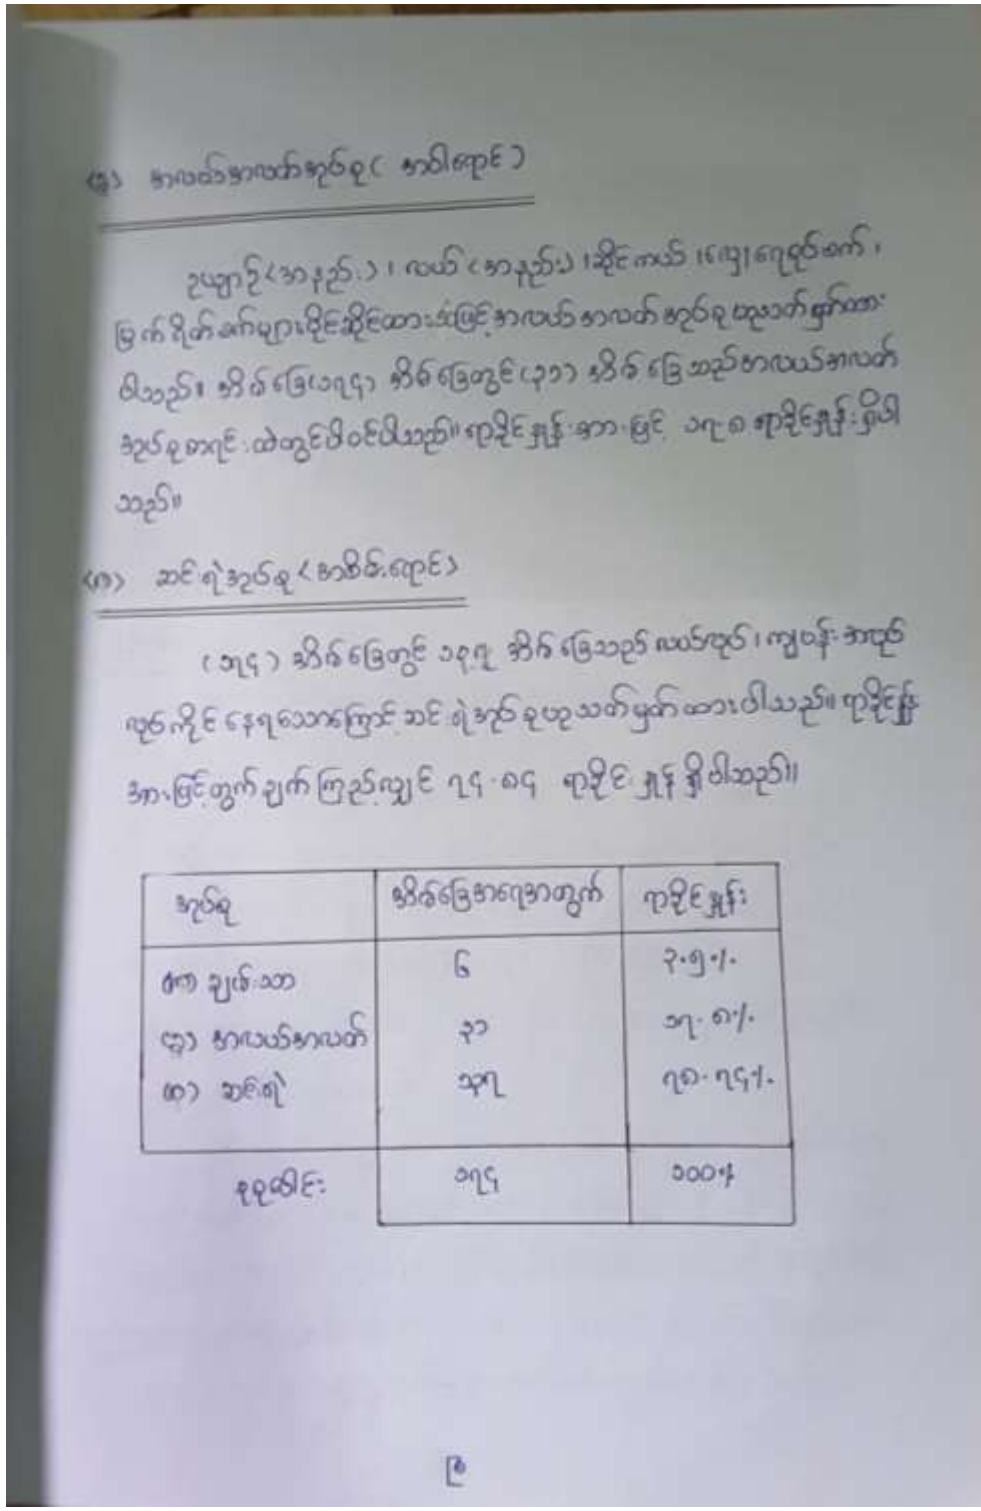 (ခ) အလယ်အလတ်အုပ်စု ( အဝါရောင် )
ဥယျာဉ် (အနည်း) ၊ လယ် (အနည်း) ၊ ဆိုင်ကယ် ၊ လှေ၊ ရေစုပ်စက် ၊
မြက်ရိတ်စက်များပိုင်ဆိုင်ထားသဖြင့် အလယ်အလတ်အုပ်စု ဟုသတ်မှတ်ထား
ပါသည်။ အိမ်ခြေ(၁၇၄) အိမ်ခြေတွင် (၃၁) အိမ်ခြေသည် အလယ်အလတ်
အုပ်စုစာရင်းထဲတွင်ပါဝင်ပါသည်။ ရာခိုင်နှုန်းအားဖြင့် ၁၇.၈ ရာခိုင်နှုန်းရှိပါ
သည်။
(ဂ) ဆင်းရဲအုပ်စု (အစိမ်းရောင်)
(၁၇၄) အိမ်ခြေတွင် ၁၃၇ အိမ်ခြေသည် လယ်လုပ် ၊ ကျပန်းအလုပ်
လုပ်ကိုင်နေရသောကြောင့် ဆင်းရဲအုပ်စုဟုသတ်မှတ်ထားပါသည်။ ရာခိုင်နှုန်း
အားဖြင့်တွက်ချက်ကြည့်လျှင် ၇၄.၈၄ ရာခိုင်နှုန်းရှိပါသည်။
အုပ်စု အိမ်ခြေအရေအတွက် ရာခိုင်နှုန်း
(က) ချမ်းသာ ၆ ၃.၅%
(ခ) အလယ်အလတ် ၃၁ ၁၇.၈%
(ဂ) ဆင်းရဲ ၁၃၇ ၇၈.၇၄%
စုစုပေါင်း ၁၇၄ ၁၀၀%